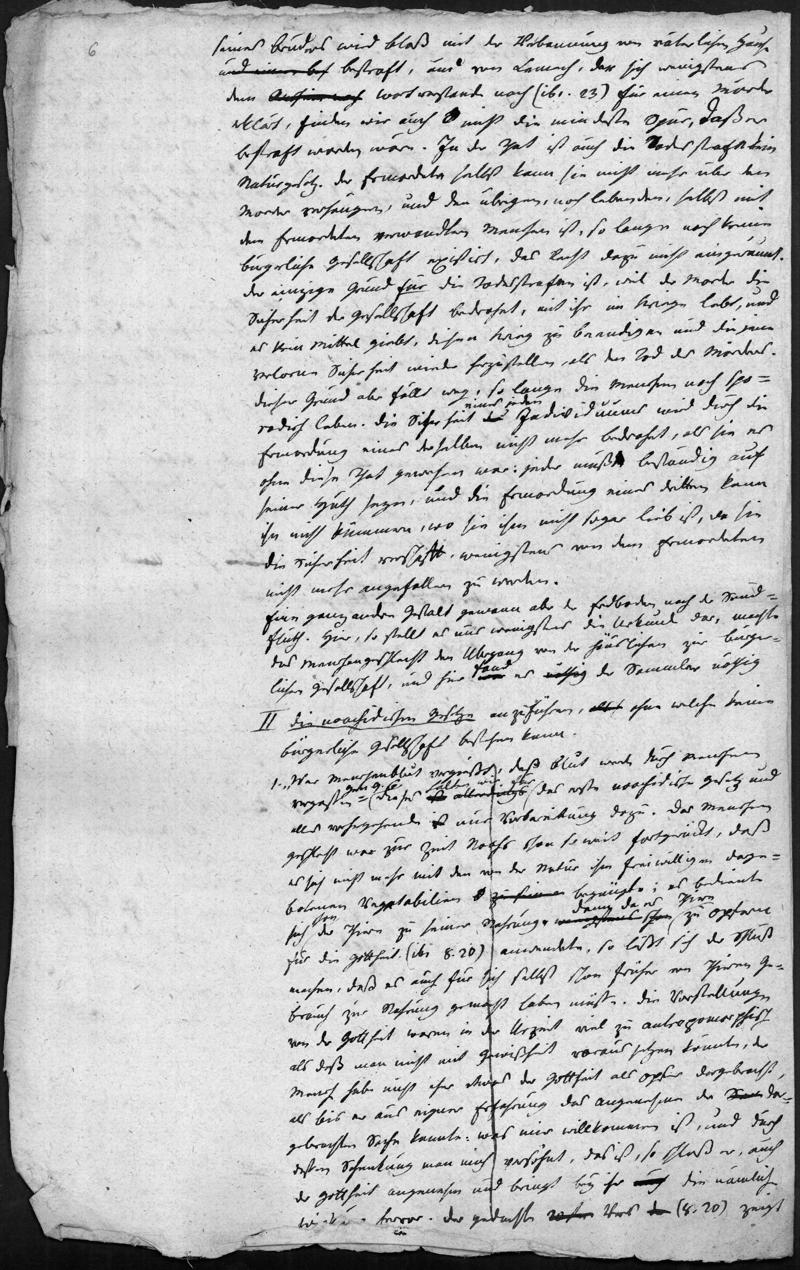 6
seines Bruders wird bloß mit der Verbannung vom väterlichen Hause
und einer bestraft, und von Lemech, der sich wenigstens
dem wortverstande nach (ib. 23) für einen Mörder
erklärt, finden wir auch nicht die mindeste Spur, daß er
bestraft worden wäre. In der That ist auch die Todesstrafe kein
Naturgesetz. der Ermordete selbst kann sie nicht mehr über den
Mörder verhängen, und den übrigen, noch lebenden, selbst mit
dem Ermordeten verwandten Menschen ist, so lange noch keine
bürgerliche Gesellschaft existirt, das Recht dazu nicht eingeräumt.
der einzige Grund für die Todesstrafen ist, weil der Mörder die
Sicherheit der Gesellschaft bedrohet, mit ihr im Kriege lebt, und
es kein Mittel giebt, diesen Krieg zu beendigen und die
verlorne Sicherheit wieder herzustellen, als den Tod des Mörders.
dieser Grund aber fällt weg, so lange die Menschen noch spo=
radisch leben. die Sicherheit eines jeden Individuums wird durch die
Ermordung eines derselben nicht mehr bedrohet, als sie es
ohne diese That gewesen war: jeder mußte beständig auf
seiner Huth seyn, und die Ermordung eines dritten kann
ihn nicht kümmern, wo sie ihm nicht sogar lieb ist, da sie
die Sicherheit verschafft, wenigstens von dem Ermordeten
nicht mehr angefallen zu werden.
Eine ganz andere Gestalt gewann aber der Erdboden nach der Sünd=
fluth. Hier, so stellt es uns wenigstens die Urkunde dar, machte
das Menschengeschlecht den Übergang von der häuslichen zur bürger=
lichen Gesellschaft, und hier fand es der Sammler nöthig
II die noachidischen Gesetze anzuführen, ohne welche keine
bürgerliche Gesellschaft bestehen kann.
1. "Wer Menschenblut vergießt, daß Blut werde durch Menschen
vergossen" (dieses das erste noachidische Gesetz und
alles vorhergehende ist nur Vorbereitung dazu. Das Menschen
geschlecht war zur Zeit Noahs schon so weit fortgerückt, daß
es sich nicht mehr mit den von der Natur ihm freiwillig darge=
botenen Vegetabilien begnügte; es bediente
sich der Thiere zu seiner Nahrung. denn da es Thiere zu Opfern
für die Gottheit (ib. 8.20) anwendete, so läßt sich der Schluß
machen, daß es auch für sich selbst schon früher von Thieren Ge=
brauch zur Nahrung gemacht haben müsse. die Vorstellungen
von der Gottheit waren in der Urzeit viel zu antropomorphisch
als daß man nicht mit Gewißheit voraussetzen könnte, der
Mensch habe nicht eher etwas der Gottheit als Opfer dargebracht,
als bis er aus eigner Erfahrung das angenehme der dar=
gebrachten Sache kannte: was mir willkommen ist, und durch
dessen Schenkung man mich versöhnt, das ist, so schloß er, auch
der Gottheit angenehm und bringt bey ihr die nämliche
hervor. der gedachte Vers (8.20) zeigt